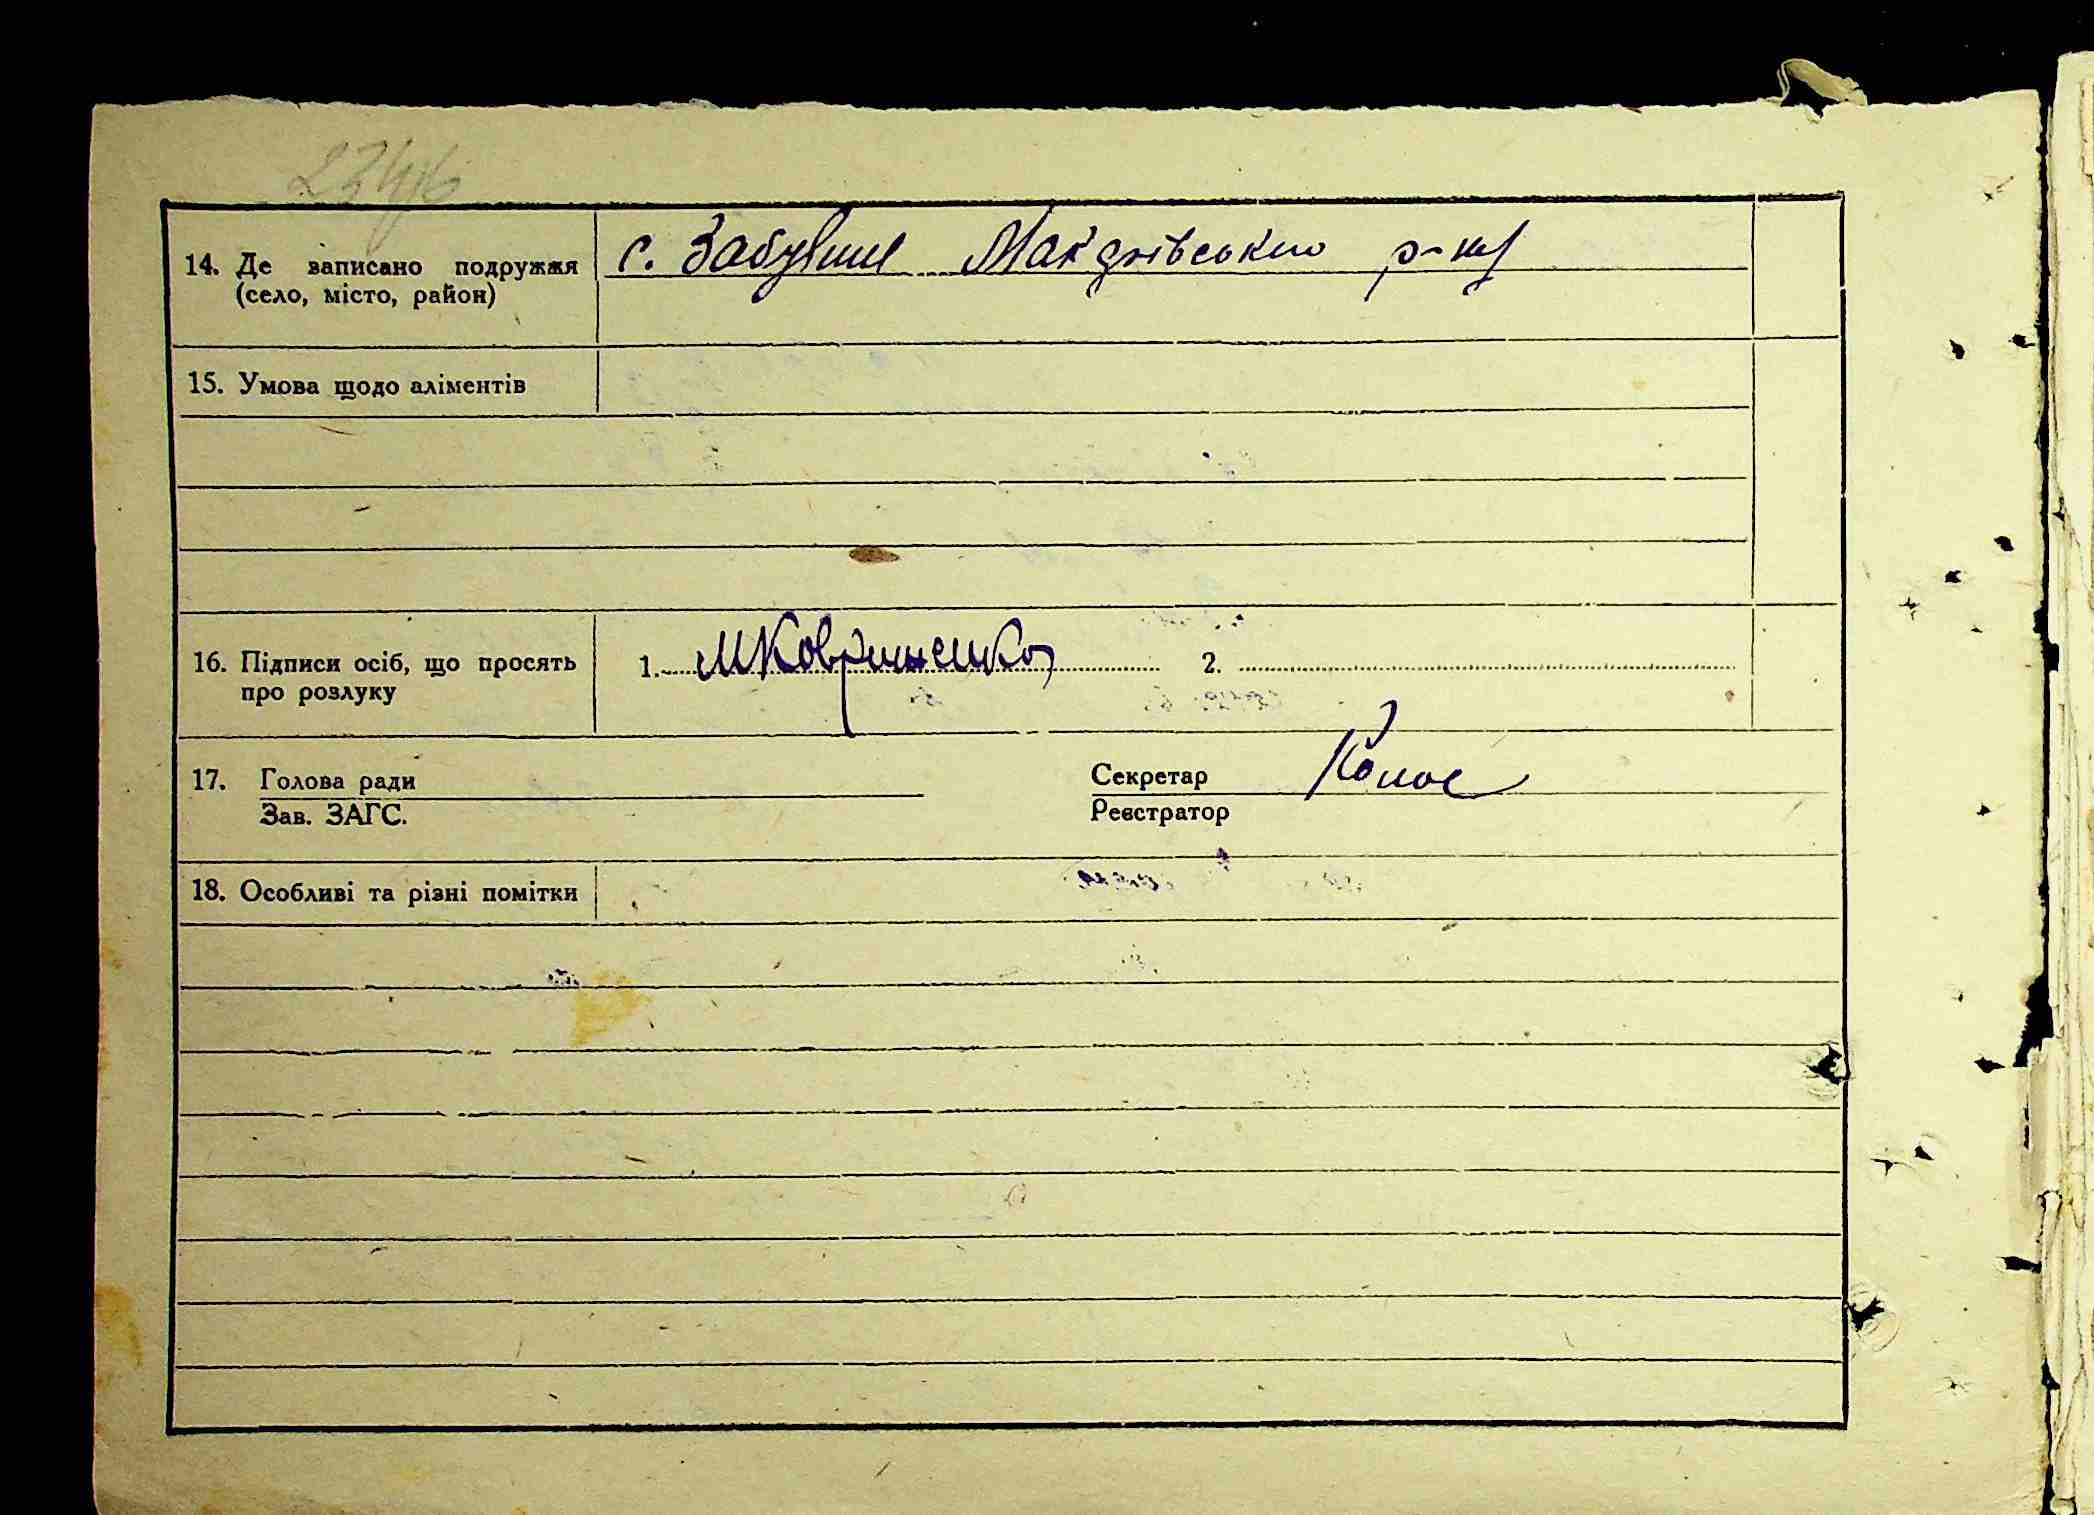 14. Де записано подружжя
(село, місто, район)
с. Забуянне Макарівського р-ну
15. Умова щодо аліментів
16. Підписи осіб, що просять
про розлуку
1. 2.
17. Голова ради
Зав. ЗАГС.
Секретар
Реєстратор
18. Особливі та різні помітки